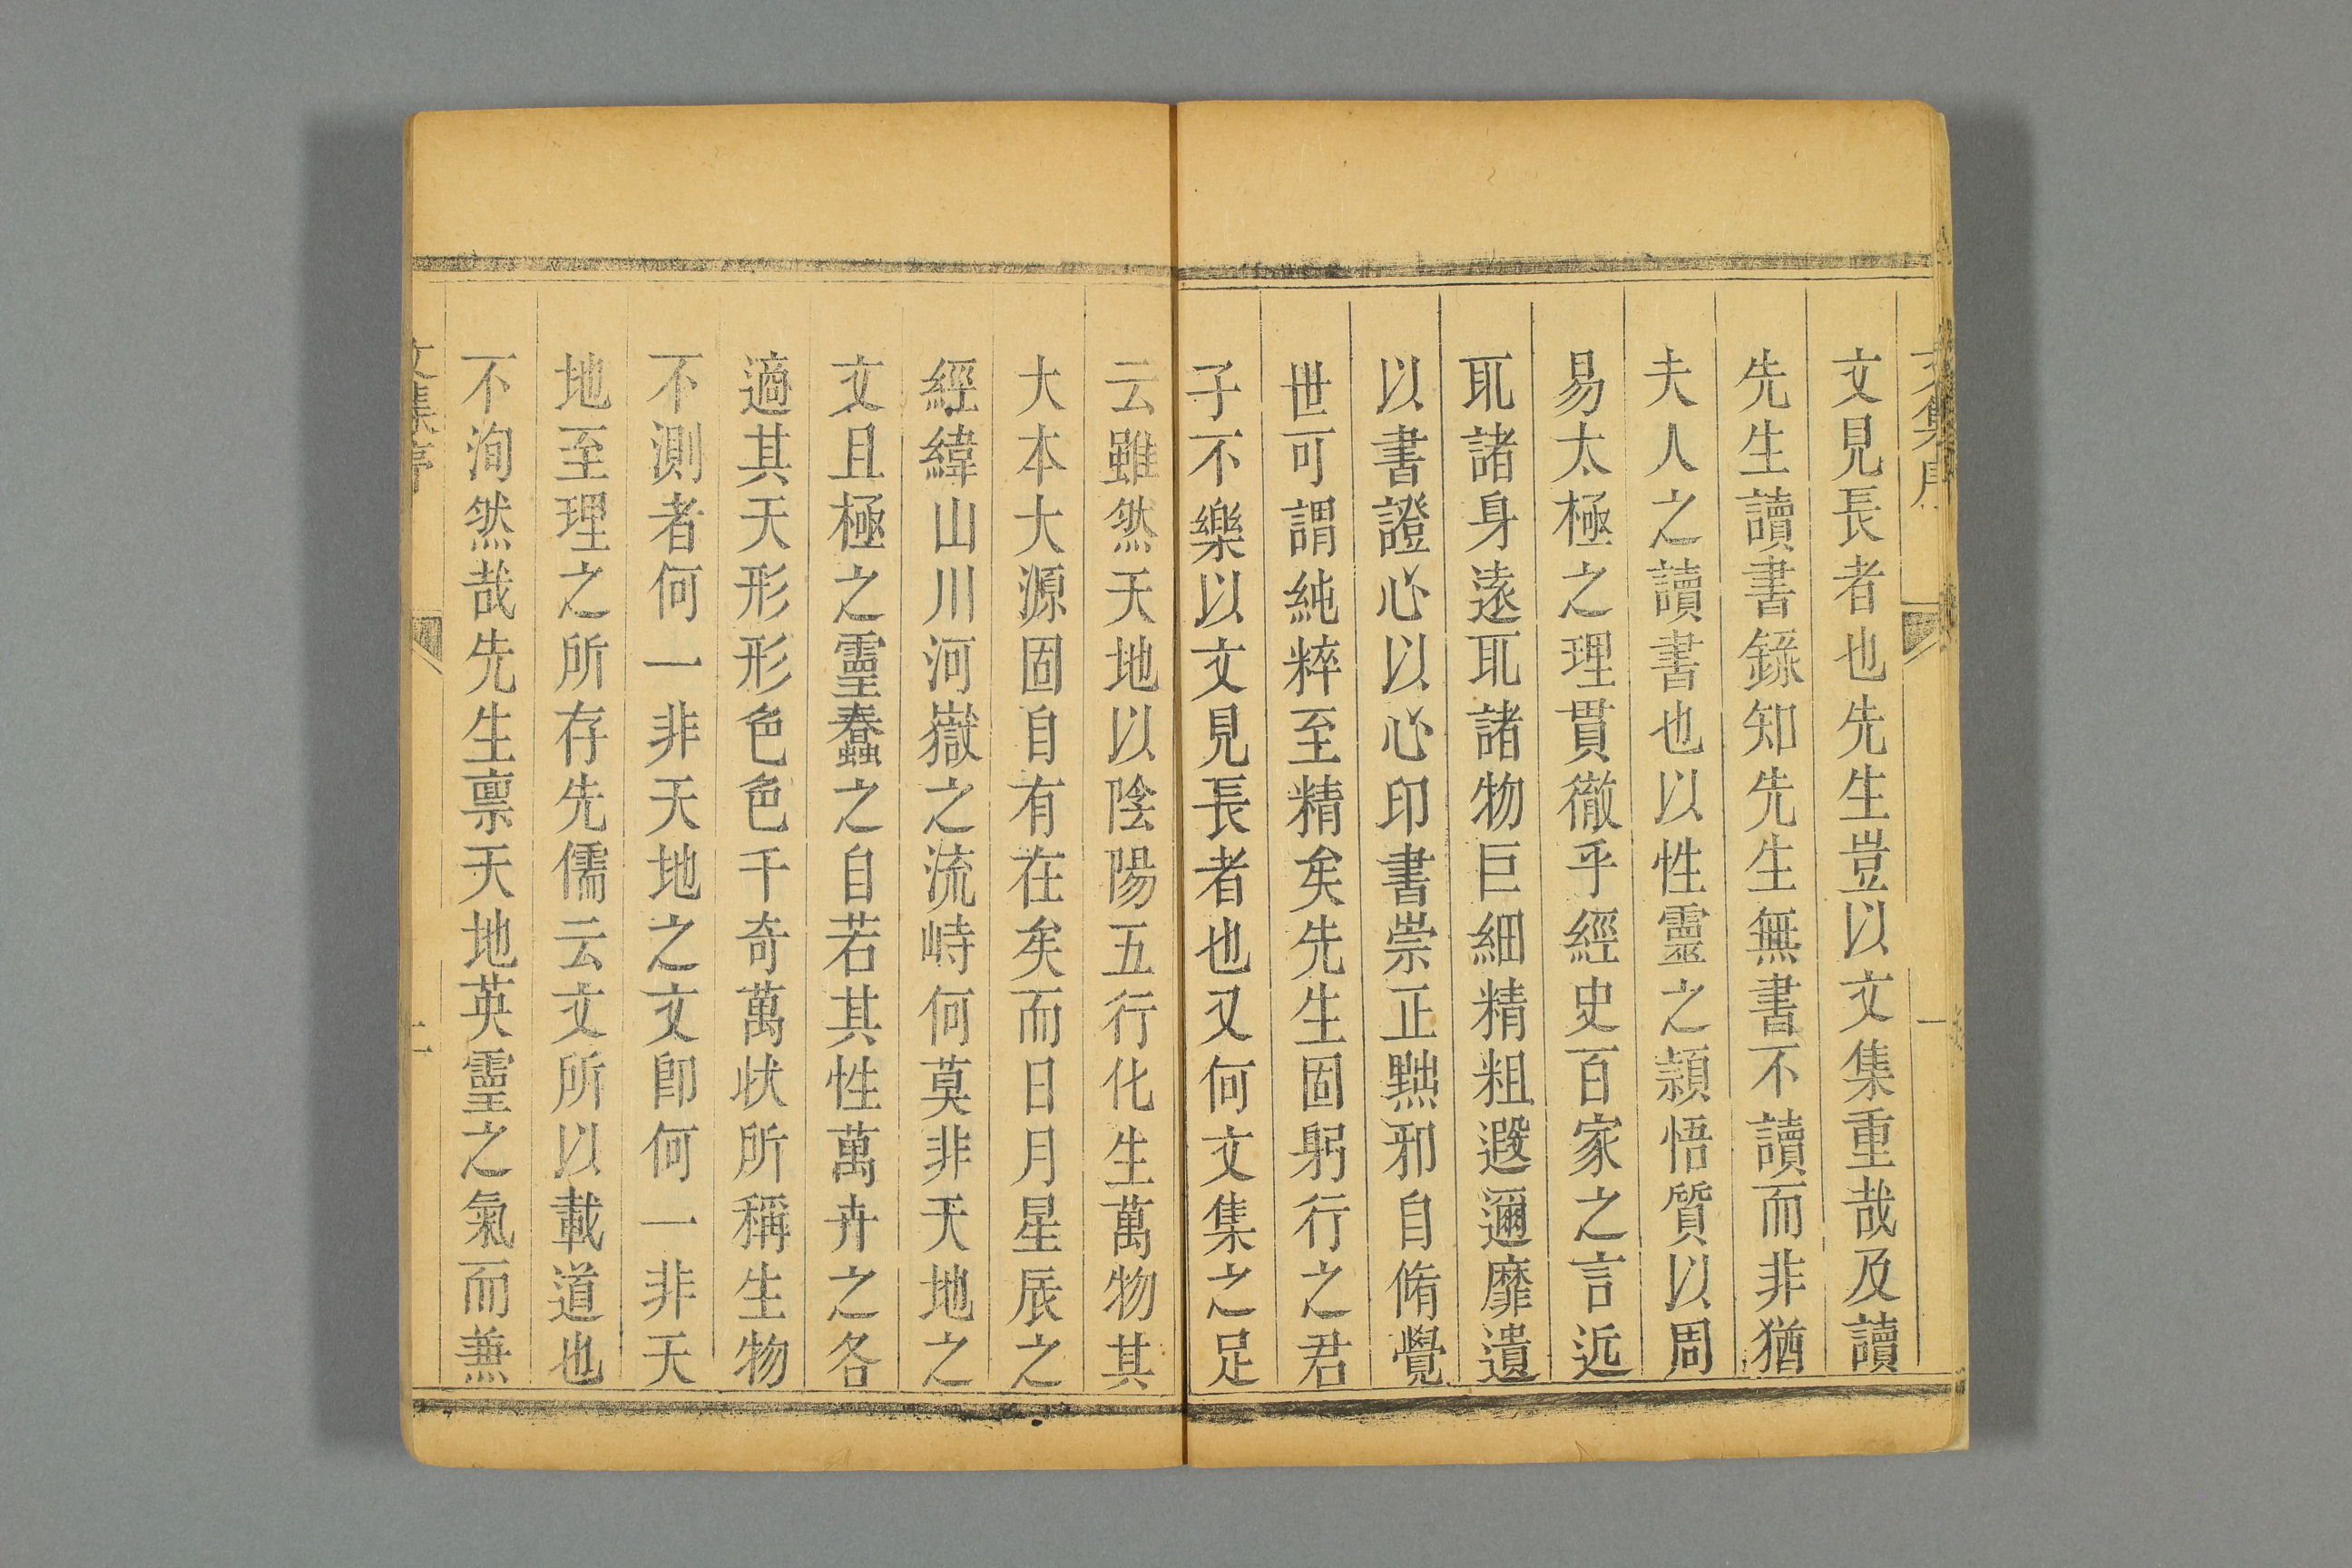 文集序
一
文見長者也先生豈以文集重哉及讀
先生讀書錄知先生無書不讀而非猶
夫人之讀書也以性靈之頴悟質以周
易太極之理貫徹乎經史百家之言近
取諸身遠取諸物巨細精粗遐邇靡遺
以書證心以心印書崇正黜邪自脩覺
世可謂純粹至精矣先生固躬行之君
子不樂以文見長者也又何文集之足
云雖然天地以陰陽五行化生萬物其
大本大源固自有在矣而日月星辰之
經緯山川河嶽之流峙何莫非天地之
文且極之靈蠢之自若其性萬卉之各
適其天形形色色千奇萬狀所稱生物
不測者何一非天地之文卽何一非天
地至理之所存先儒云文所以載道也
不洵然哉先生禀天地英靈之氣而兼
文集序
二